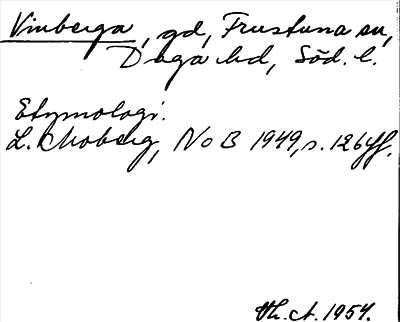 Vinberga, gd, Frustuna sn,
Daga hd, Söd. l.
Etymologi.
L. Moberg, NoB 1949, s. 126 ff.
1957.